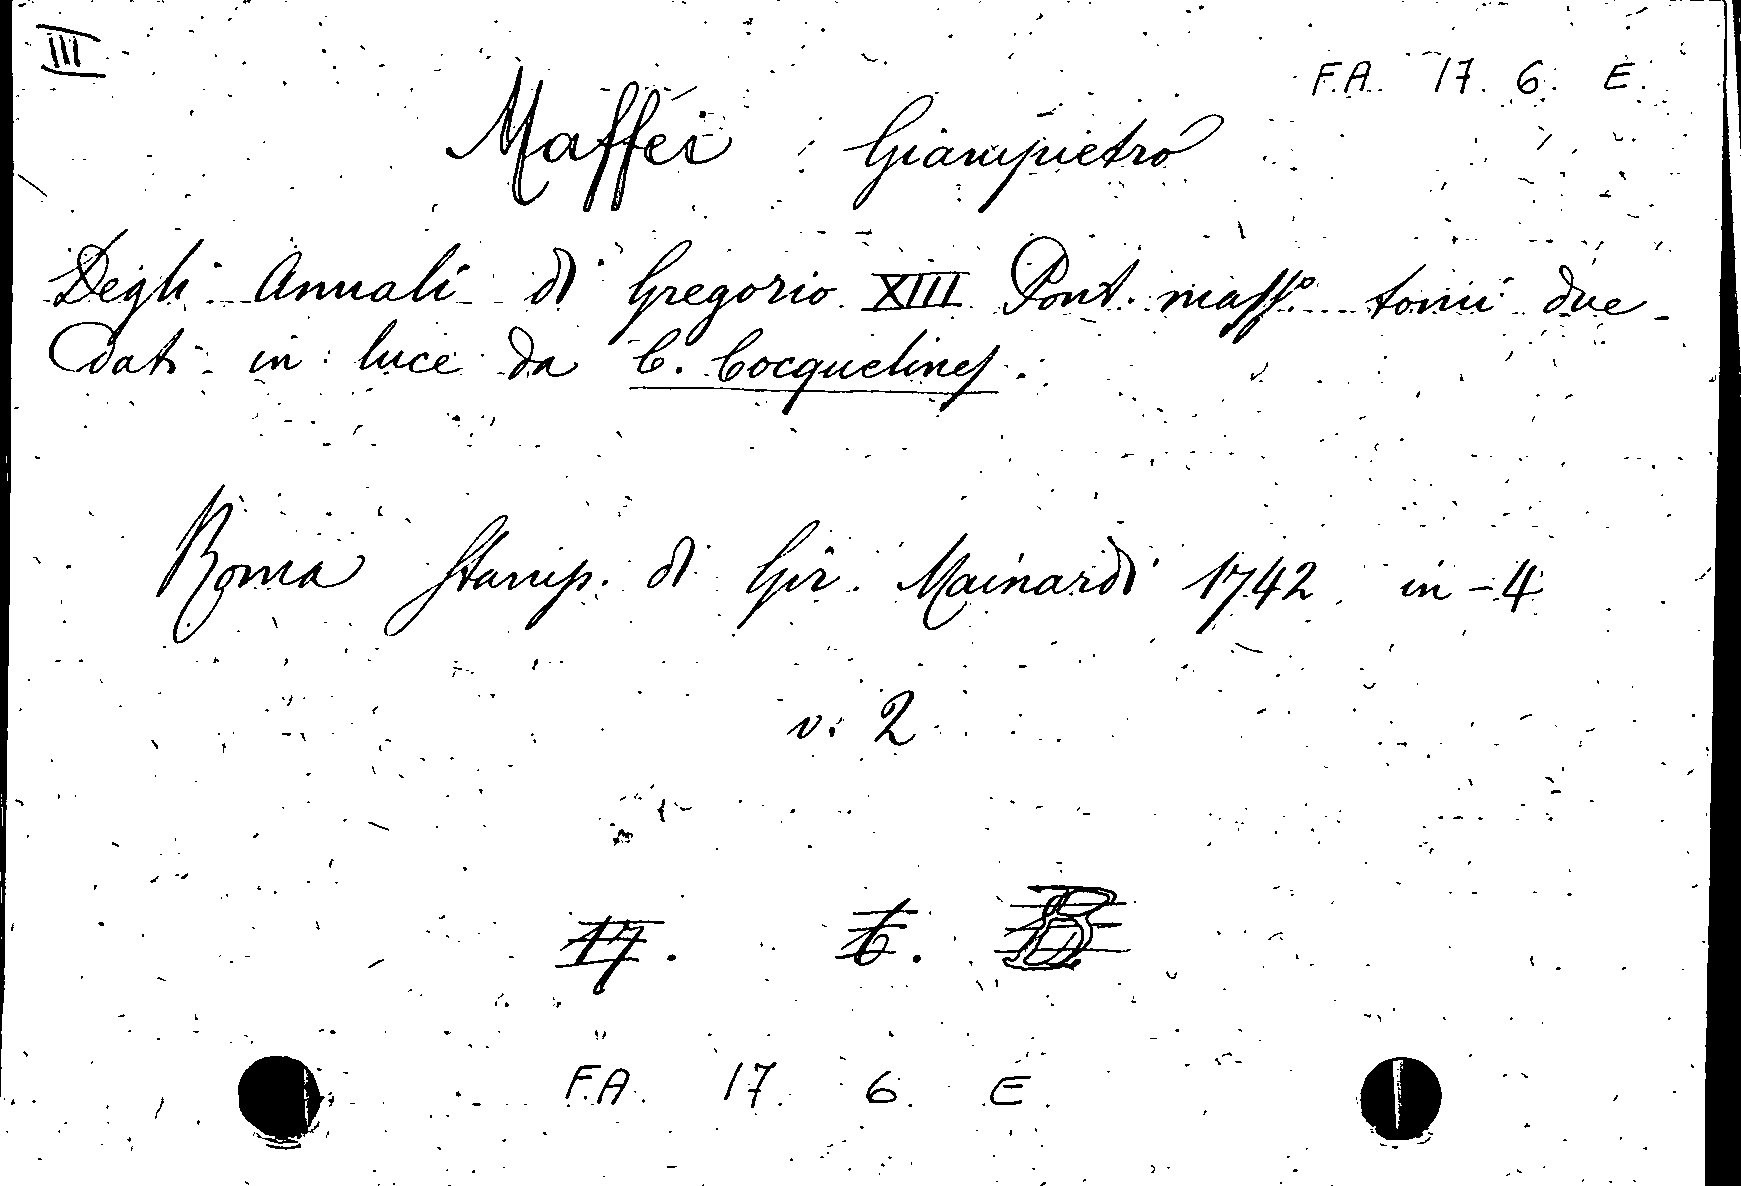 III
F.A. 17. 6. E.
Maffei Giampietro
Degli Annali di Gregorio XIII Pont. mass.º tomi due
dati in luce da C. Cocquelines.
Roma Stamp. di Gir. Mainardi 1742 in-4
v. 2
17. 6.
F.A. 17. 6. E.